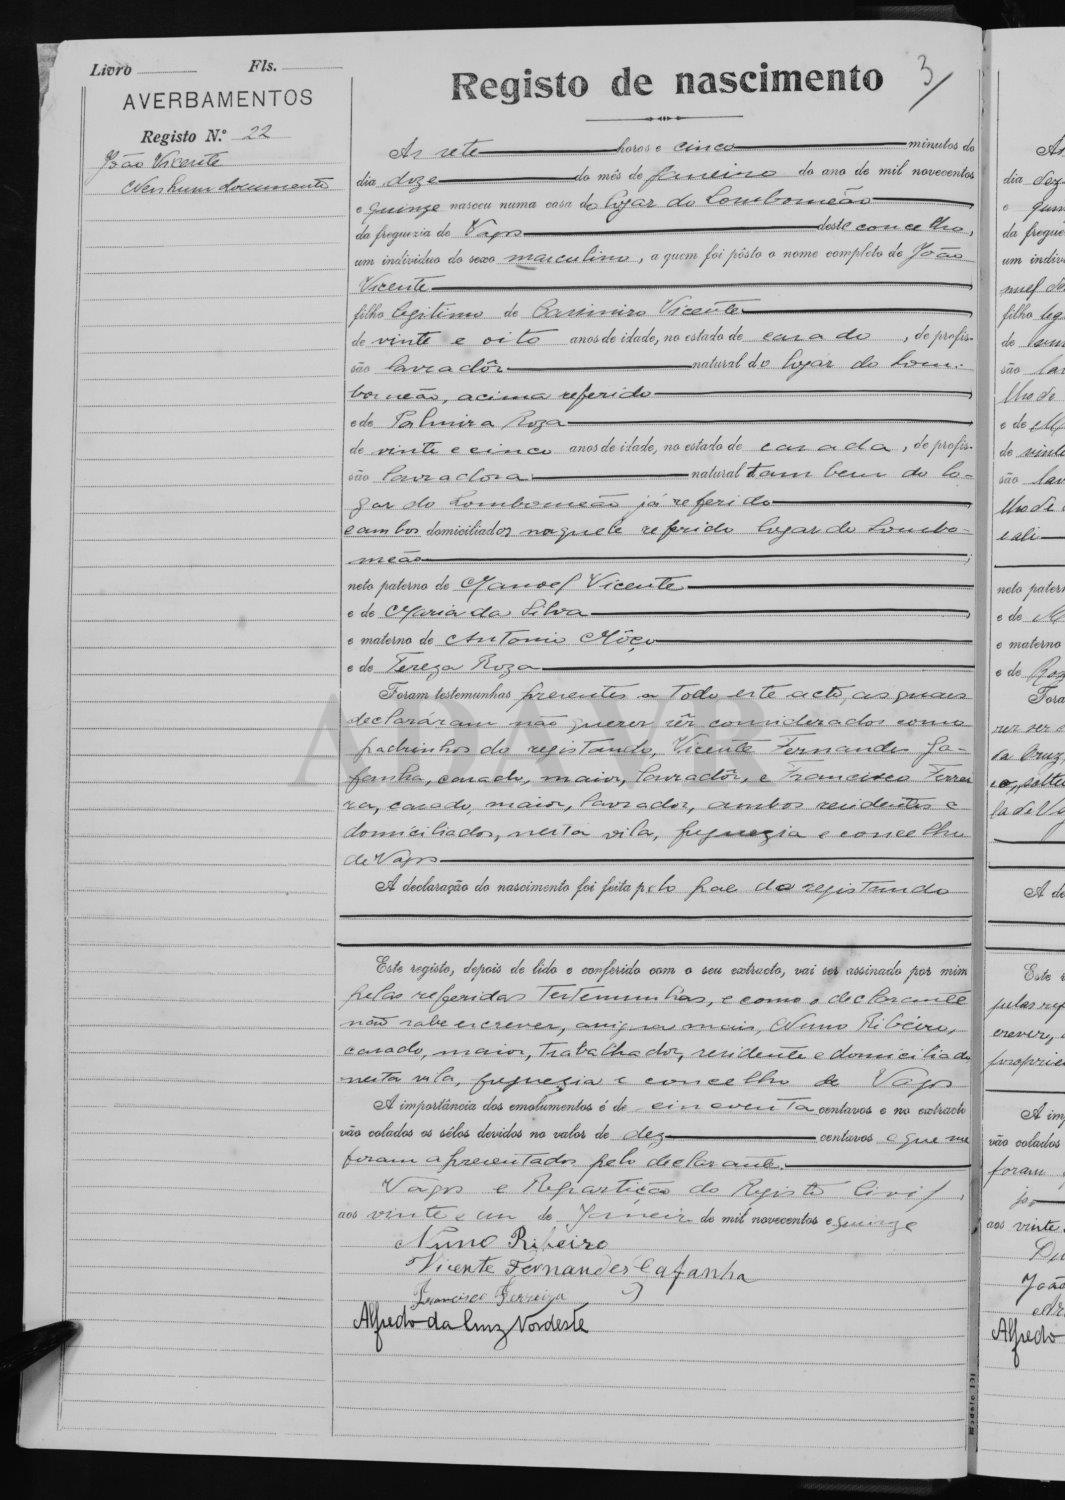 Livro Fls.
AVERBAMENTOS
Registo N.º 22
João Vicente
Nenhum documento
Registo de nascimento 3
As sete horas e cinco minutos do
dia doze do mês de Janeiro do ano de mil novecentos
e quinze nasceu numa casa do logar do Lombomeão
da freguezia de Vagos deste concelho,
um individuo do sexo masculino, a quem foi pôsto o nome completo de João
Vicente
filho legitimo de Casimiro Vicente
de vinte e oito anos de idade, no estado de casado, de profis-
são lavradôr natural do logar do Lom-
bomeão, acima referido
e de Palmira Roza
de vinte e cinco anos de idade, no estado de casada, de profis-
são lavradora natural tambem do lo-
gar do Lombomeão já referido
e ambos domiciliados naquele referido logar do Lombo-
meão
neto paterno de Manoel Vicente
e de Maria da Silva
e materno de Antonio Môço
e de Tereza Roza
Foram testemunhas presentes a todo este acto, as quais
declaráram não querer sêr considerados como
padrinhos do registando, Vicente Fernandes Ca-
fanha, casado, maior, lavradôr, e Francisco Ferrei
ra, casado, maior, lavrador, ambos residentes e
domiciliados, nesta vila, freguezia e concelho
de Vagos
A declaração do nascimento foi feita pelo pae do registando
Este registo, depois de lido e conferido com o seu extracto, vai ser assinado por mim
pelas referidas testemunhas, e como o declarante
não sabe escrever, assigna mais, Nuno Ribeiro,
casado, maior, trabalhador, residente e domiciliado
nesta vila, freguezia e concelho de Vagos
A importância dos emolumentos é de cincoenta centavos e no extracto
vão colados os sêlos devidos no valor de dez centavos e que me
foram apresentados pelo declarante.
Vagos e Repartição do Registo Civil,
aos vinte e um de Janeiro de mil novecentos e quinze
Nuno Ribeiro
Vicente Fernandes Cafanha
Francisco Ferreira
Alfredo da Cruz Nordeste
ADAVR
Modelo 131